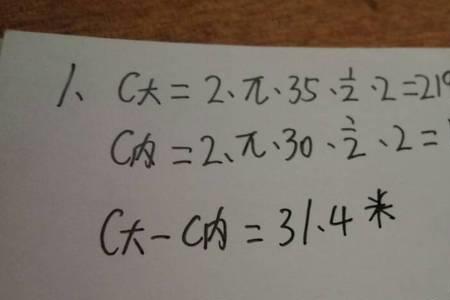 1、C大=2、π、35、½、2=219
C内=2、π、30、½、2=
C大-C内=31.4米